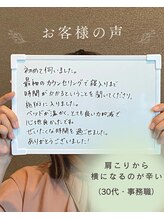 お客様の声
初めて伺いました。
最初のカウンセリングで親身に
時間がかかるということを聞いてくださり、
施術に入りました。
ベッドが温かく、とても良い加減で
心地良かったです。
ぜいたくな時間を過ごせました。
ありがとうございました!
肩こりから
横になるのが辛い
(30代・事務職)